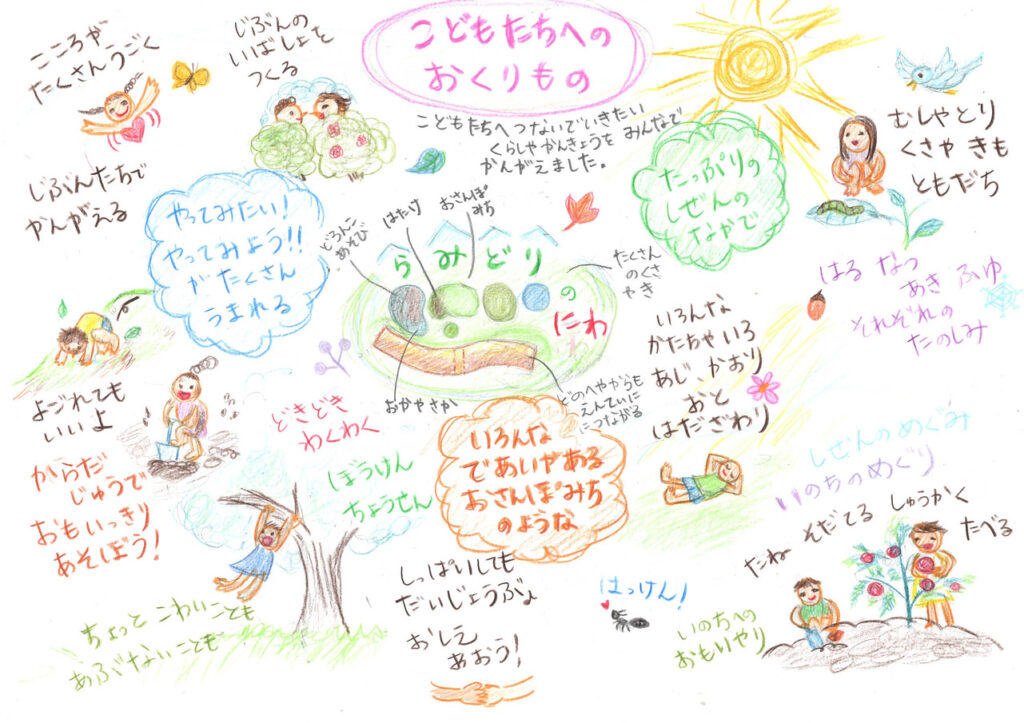 こどもたちへの
おくりもの
こどもたちへ つないでいきたい
くらしや かんきょうを みんなで
かんがえました。
こころが
たくさんうごく
じぶんの
いばしょを
つくる
じぶんたちで
かんがえる
やってみたい!
やってみよう!!
が たくさん
うまれる
たっぷりの
しぜんの
なかで
むしやとり
くさや きも
ともだち
はる なつ
あき ふゆ
それぞれの
たのしみ
どろんこ
あそび
はたけ
おさんぽ
みち
らみどり
の
にわ
たくさん
のくさ
やき
おかやさか
どのへやからも
えんていに
つながる
いろんな
かたちや いろ
あじ、かおり
おと
はだざわり
よごれても
いいよ
からだ
じゅうで
おもいっきり
あそぼう!
どきどき
わくわく
ぼうけん
ちょうせん
いろんな
であいやある
おさんぽみち
のような
しぜんのめぐみ
いのちのめぐり
たね そだてる しゅうかく たべる
ちょっと こわいことも
あぶないことも
しっぱいしても
だいじょうぶ♪
おしえ
あおう!
はっけん!
いのちへの
おもいやり